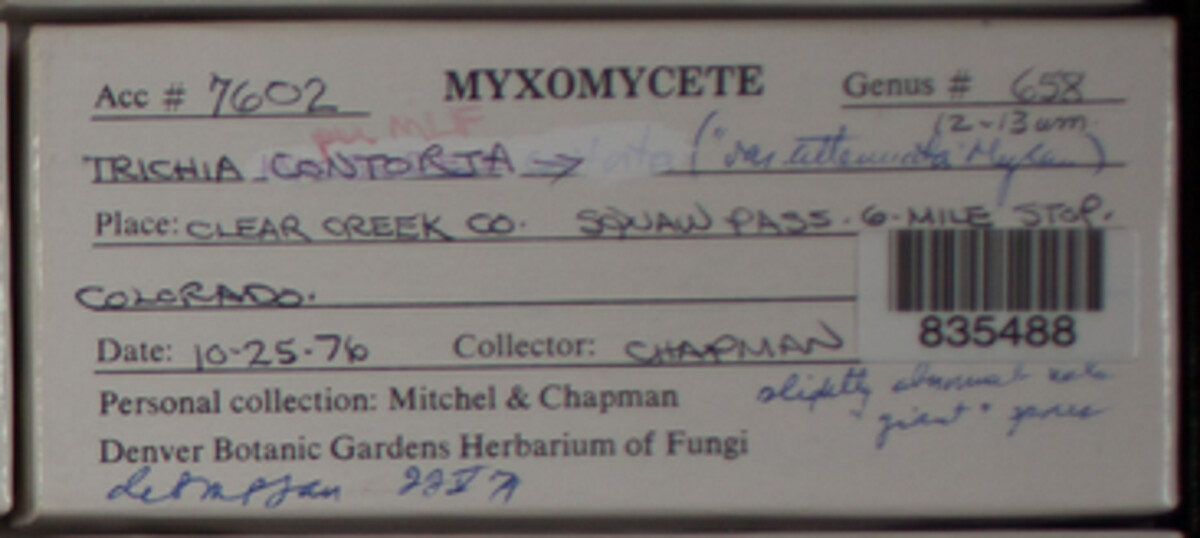 Acc # 7602 MYXOMYCETE Genus # 658
12-13 um
per MLF
TRICHIA CONTORTA → ("var. attenuata" Mylan)
Place: CLEAR CREEK CO. SQUAW PASS. 6-MILE STOP.
COLORADO.
835488
Date: 10-25-76 Collector: CHAPMAN
Personal collection: Mitchel & Chapman
slightly abnormal
"giant" spores
Denver Botanic Gardens Herbarium of Fungi